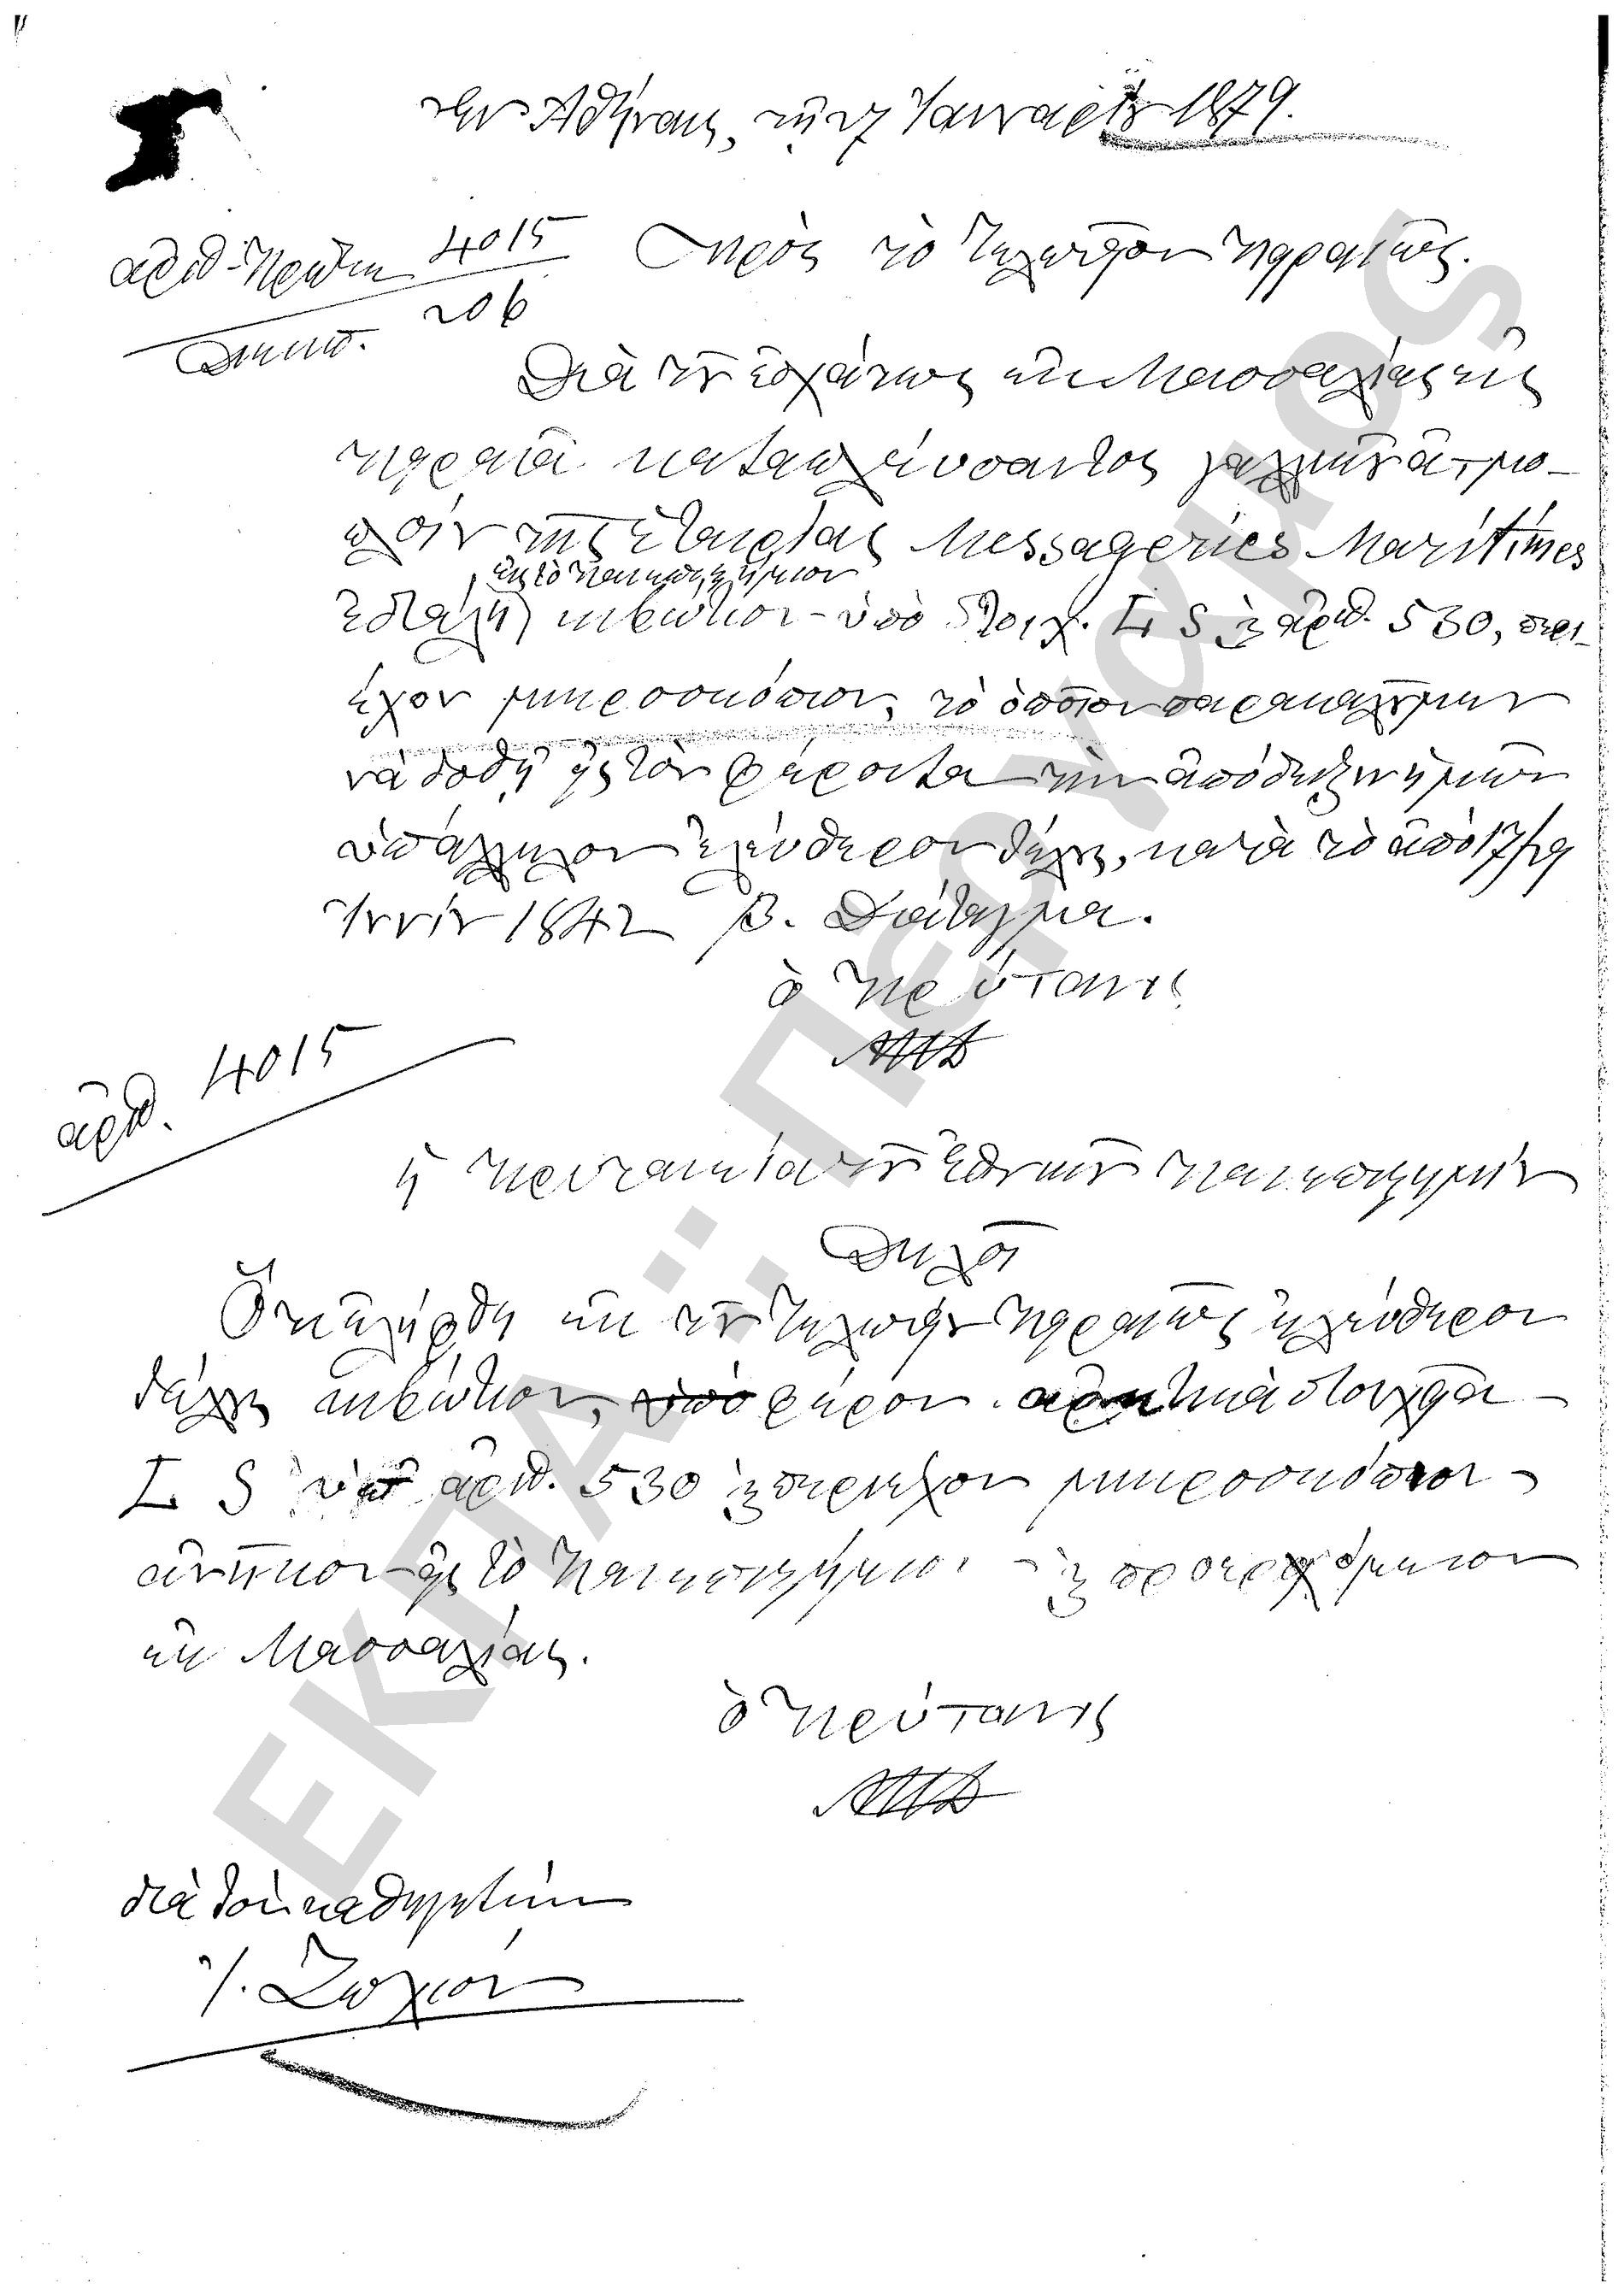 Ἐν Ἀθήναις, τῇ 17 Ἰανναρίου 1879.
ἀριθ. Πρωτ. 4015
Διεκπ. 206
Πρὸς τὸ Τελωνεῖον Πειραιῶς.
Διὰ τοῦ ἐσχάτως ἐκ Μασσαλίας εἰς
Πειραιᾶ καταπλεύσαντος γαλλικοῦ ἀτμο-
πλοίου τῆς Ἑταιρίας Messageries Maritimes
εἰς τὸ Πανεπιστήμιον
ἐστάλη κιβώτιον ὑπὸ στοιχ. Σ S καὶ ἀριθ. 530, περι-
έχον μικροσκόπιον, τὸ ὁποῖον παρακαλοῦμεν
νὰ δοθῇ εἰς τὸν φέροντα τὴν ἀπόδειξιν ἡμῶν
ὑπάλληλον ἐλεύθερον τέλους, κατὰ τὸ ἀπὸ 17/29
Ἰουνίου 1842 Β. Διάταγμα.
ὁ Πρύτανις
ἀριθ. 4015
ἡ Πρυτανεία τοῦ Ἐθνικοῦ Πανεπιστημίου
Δηλοῖ
Ὅτι ἐλήφθη ἐκ τοῦ Τελωνείου Πειραιῶς ἐλεύθερον
τέλους κιβώτιον, ὑπὸ φέρον ἀρκτικὰ στοιχεῖα
Σ S ὑπ' ἀριθ. 530 καὶ περιέχον μικροσκόπιον
ἀνῆκον εἰς τὸ Πανεπιστήμιον καὶ προερχόμενον
ἐκ Μασσαλίας.
ὁ Πρύτανις
διὰ τὸν καθηγητὴν
Ι. Ζωχιόν
ΕΚΠΑ: Πέργαμος